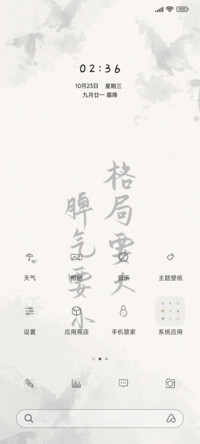 02:36
10月23日 星期三
九月廿一 霜降
格局要大
脾气要小
天气
相册
音乐
主题壁纸
设置
应用商店
手机管家
系统应用